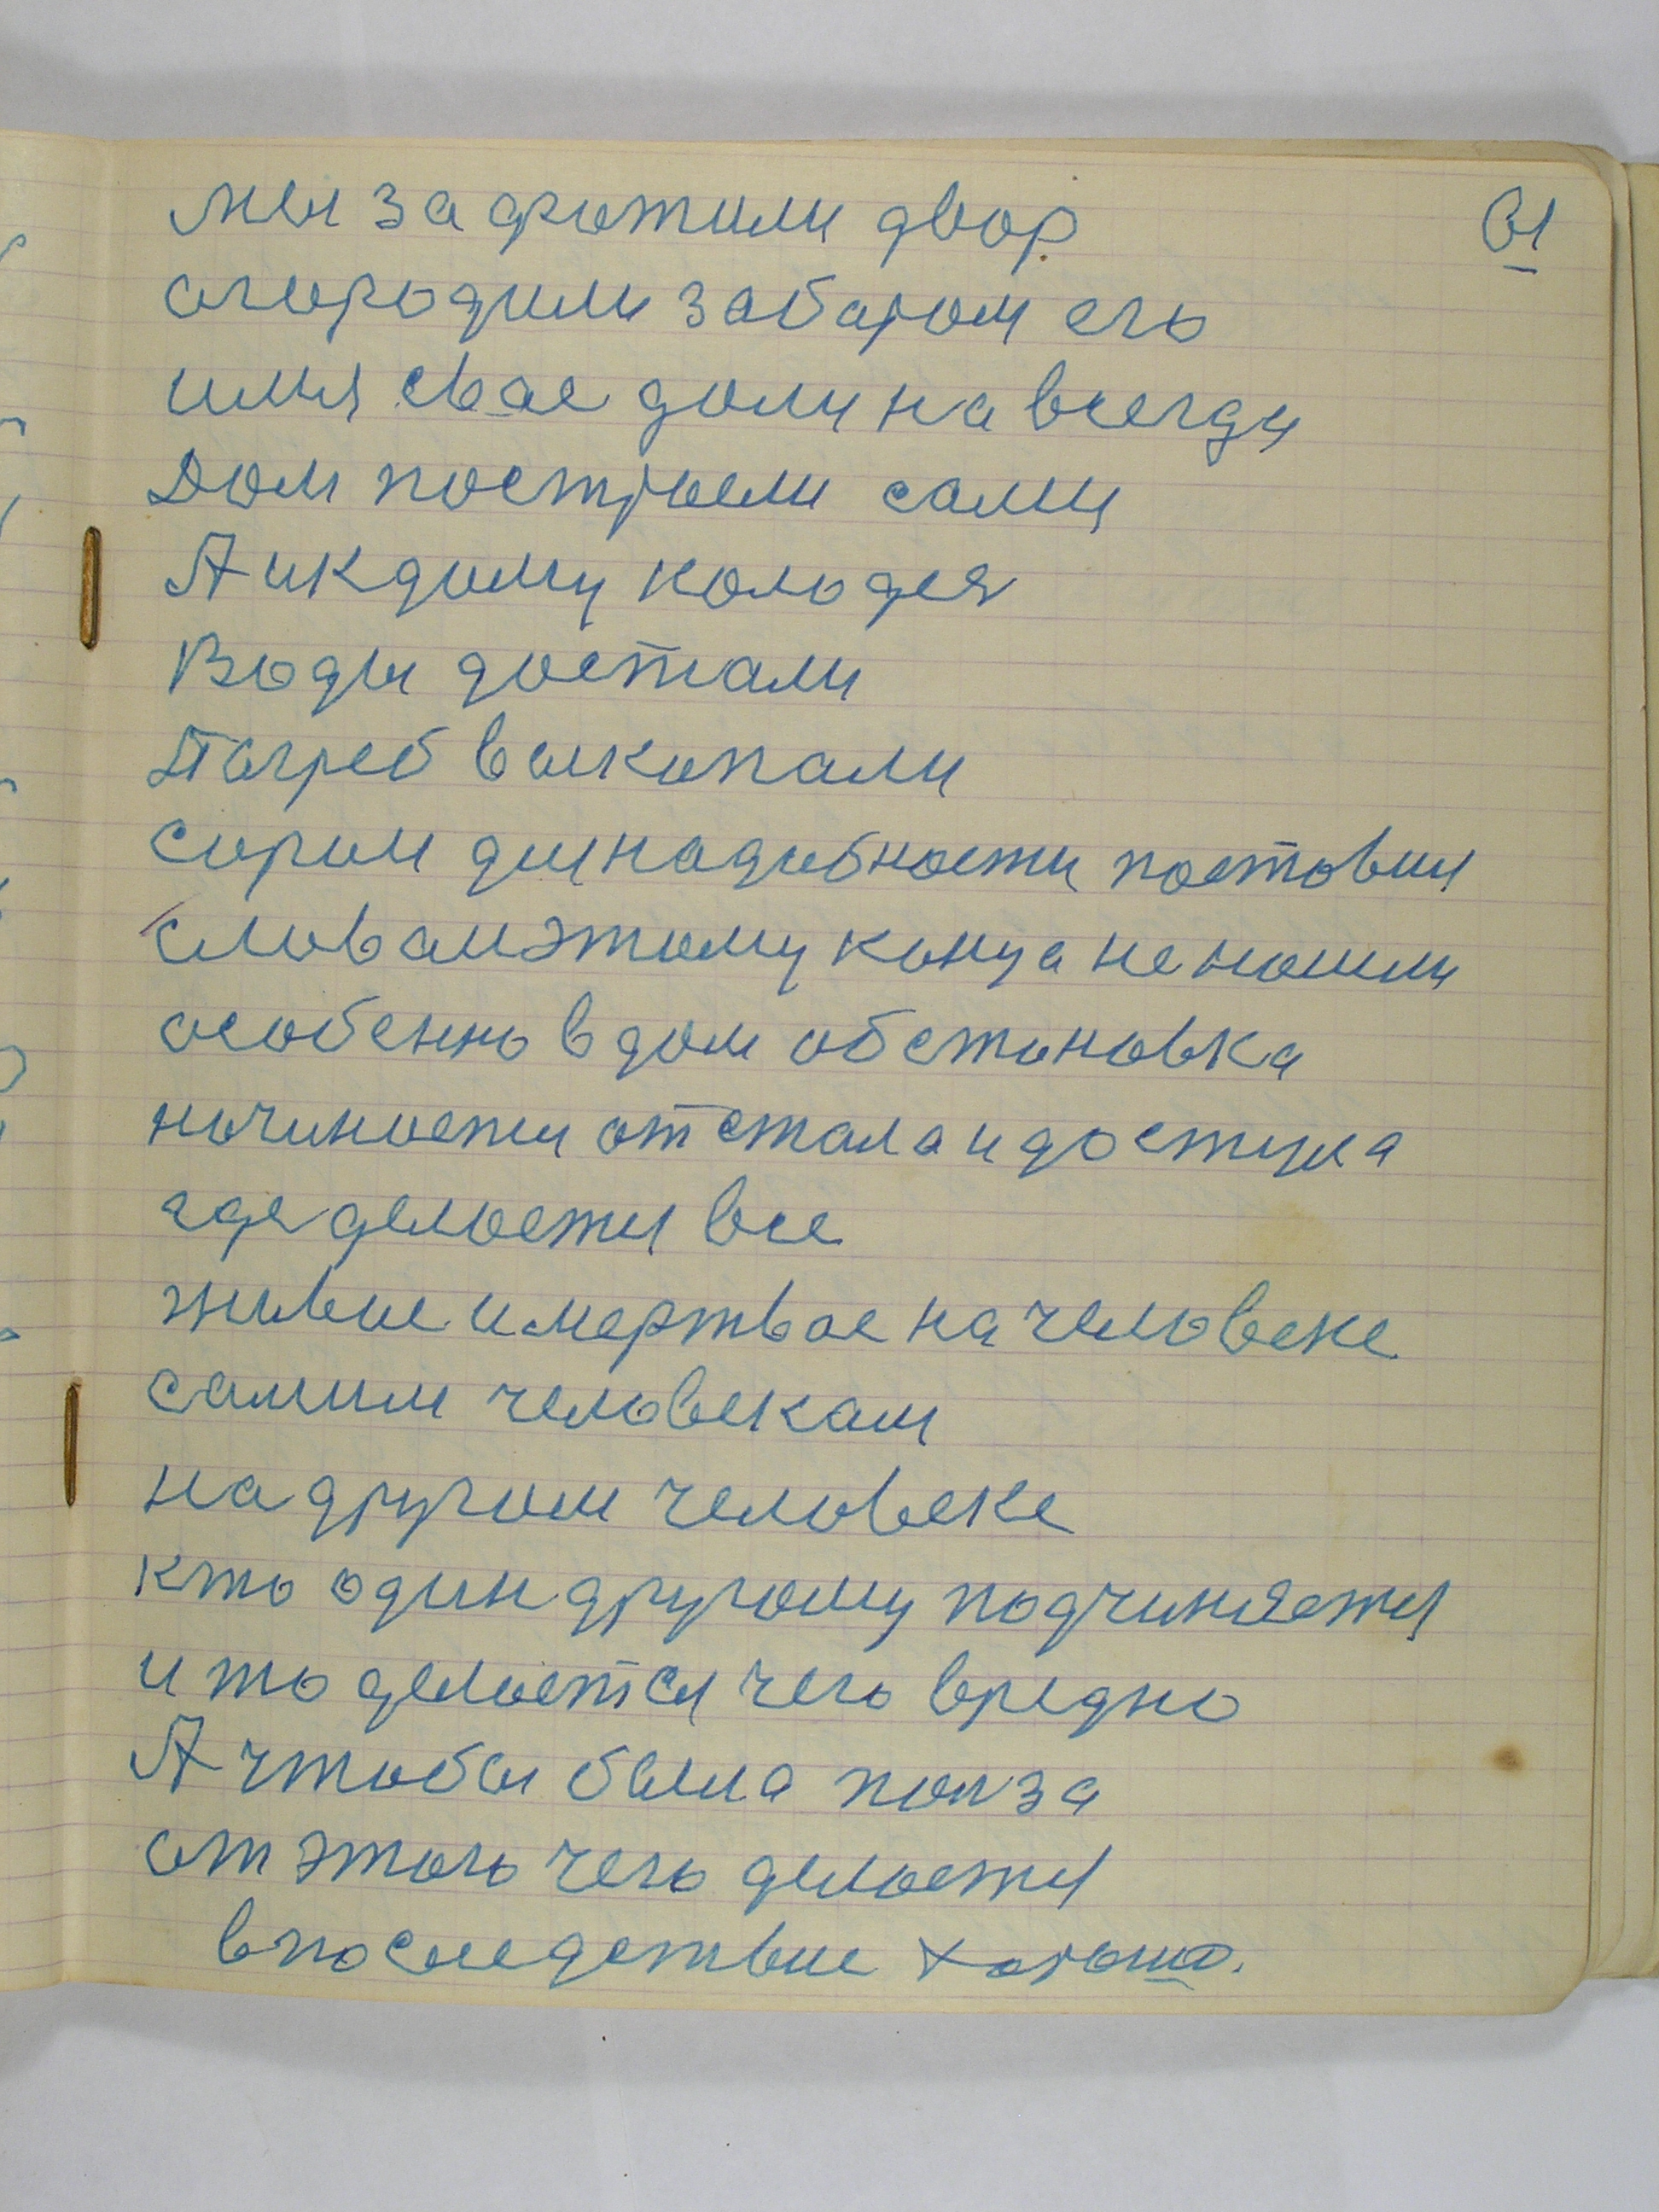 61
мы за дротили двор
огородили забаром его
имя свае доли на всегда
Дом построели сами
А и к дому колодея
Воды достали
Погреб выкопали
сораи для надобности поставил
словам этому конца не нашли
особенно в дом обстановка
начинается от стала и до стула
где делается все
живое и мертвое на человеке
самим человекам
на другом человеке
кто один другому подчиняется
и то делается чего вредно
А чтобы была полза
от этого чего делается
в последствие хорошо.